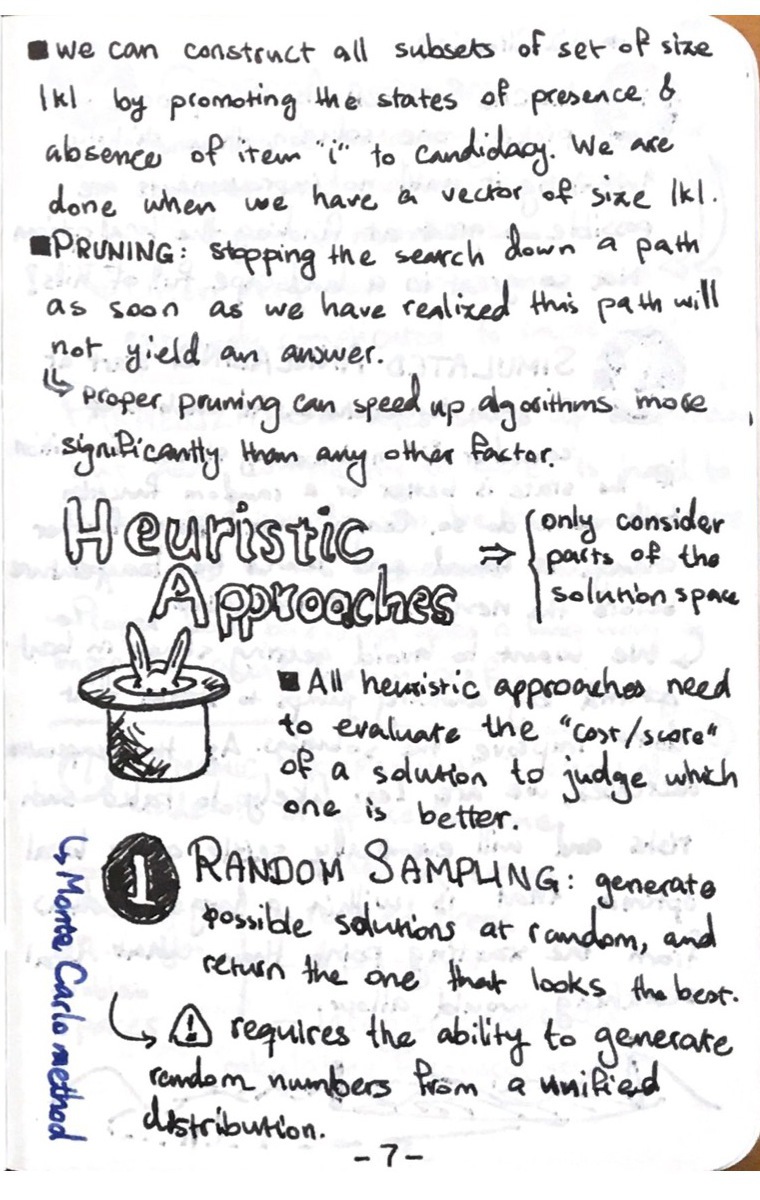 ■ we can construct all subsets of set of size
|k| by promoting the states of presence &
absence of item "i" to candidacy. We are
done when we have a vector of size |k|.
■ PRUNING: stopping the search down a path
as soon as we have realized this path will
not yield an answer.
↳ Proper pruning can speed up algorithms more
significantly than any other factor.
Heuristic
Approaches
⇒ { only consider
parts of the
solution space
■ All heuristic approaches need
to evaluate the "cost/score"
of a solution to judge which
one is better.
1 RANDOM SAMPLING: generate
possible solutions at random, and
return the one that looks the best.
↳ ⚠ requires the ability to generate
random numbers from a unified
distribution.
↳ Monte Carlo method
- 7 -